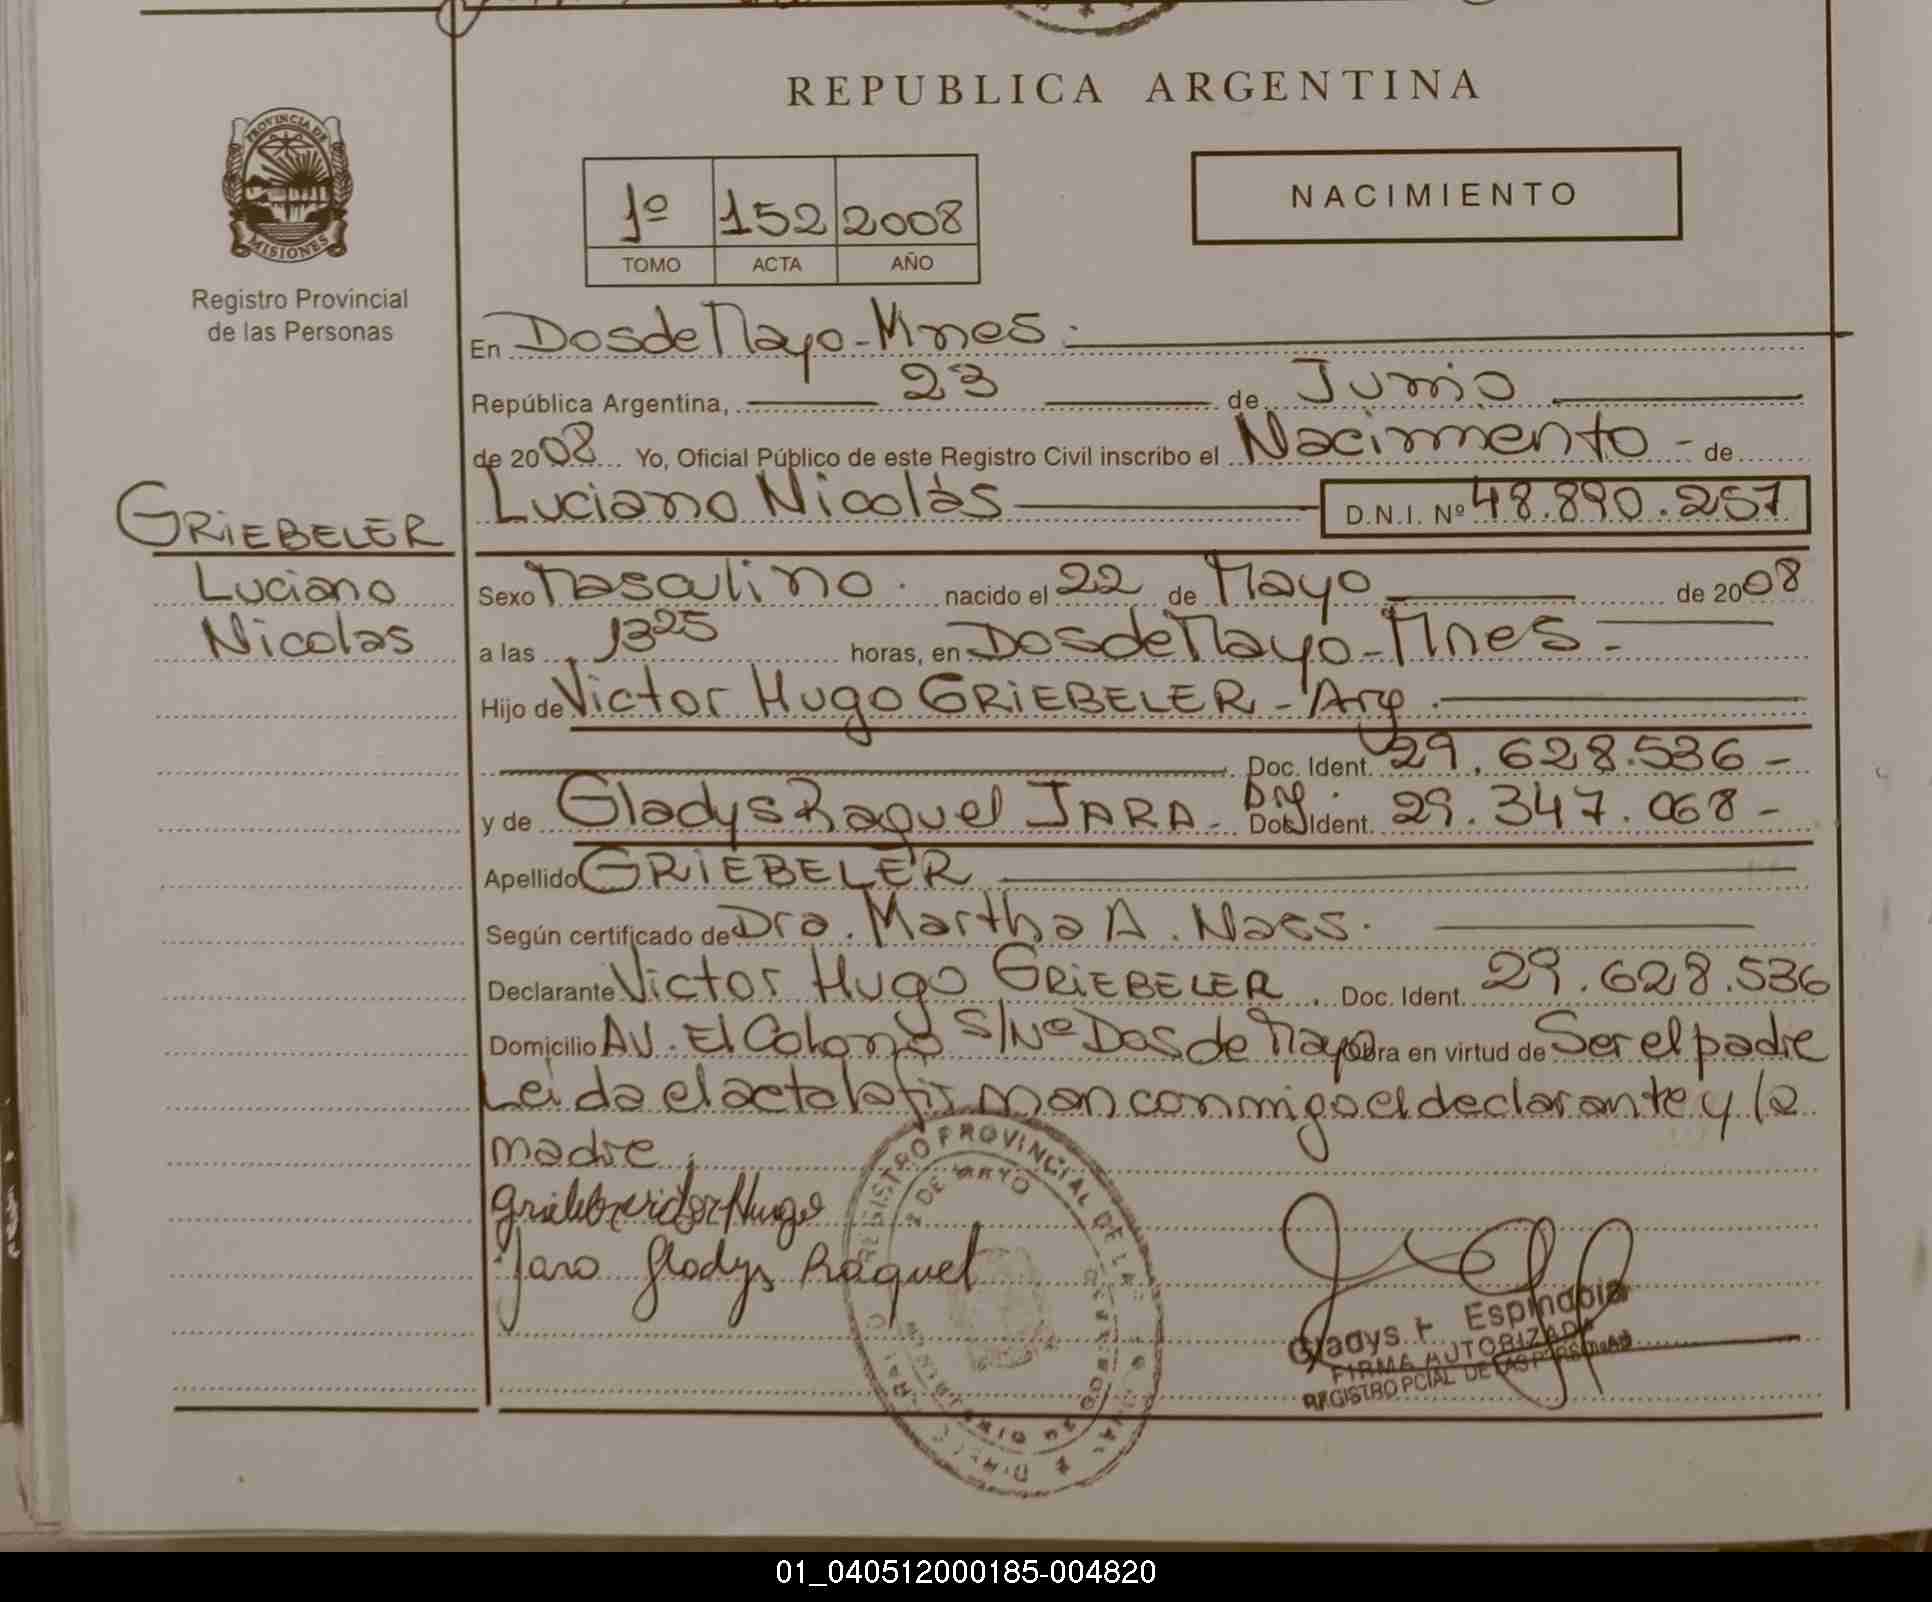 REPUBLICA ARGENTINA
PROVINCIA DE
MISIONES
Registro Provincial
de las Personas
1º 152 2008
TOMO ACTA AÑO
NACIMIENTO
En Dos de Mayo - Mnes.
República Argentina, 23 de Junio
de 2008 Yo, Oficial Público de este Registro Civil inscribo el Nacimiento - de
Luciano Nicolás D.N.I. Nº 48.890.257
GRIEBELER
Luciano
Nicolas
Sexo Masculino. nacido el 22 de Mayo de 2008
a las 1325 horas, en Dos de Mayo - Mnes -
Hijo de Victor Hugo GRIEBELER - Arg.
Doc. Ident. 29.628.536 -
y de Gladys Raquel JARA - Arg. Doc. Ident. 29.347.068 -
Apellido GRIEBELER
Según certificado de Dra. Martha A. Naes.
Declarante Victor Hugo GRIEBELER. Doc. Ident. 29.628.536
Domicilio AV. El Colono S/Nº Dos de Mayo Obra en virtud de Ser el padre
Leida el acta la firman conmigo el declarante y la
madre.
Victor Hugo
Jara Gladys Raquel
REGISTRO PROVINCIAL DE LAS
2 DE MAYO
Gladys F. Espindola
FIRMA AUTORIZADA
REGISTRO PCIAL DE LAS PERSONAS
01_040512000185-004820